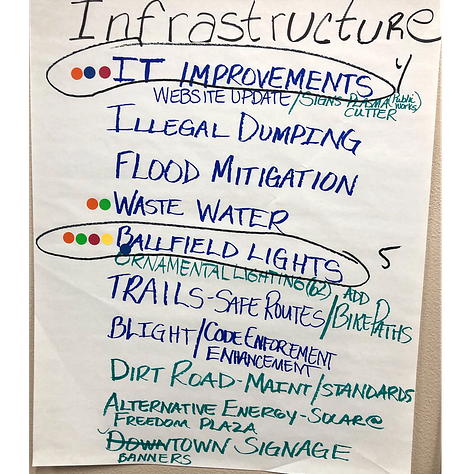 Infrastructure
IT IMPROVEMENTS 4
WEBSITE UPDATE/SIGNS PLASMA (Public
CUTTER Works)
ILLEGAL DUMPING
FLOOD MITIGATION
WASTE WATER
BALLFIELD LIGHTS 5
ORNAMENTAL LIGHTING (62)
TRAILS-SAFE ROUTES/ADD BIKE PATHS
BLIGHT/CODE ENFORCEMENT
ENHANCEMENT
DIRT ROAD-MAINT/STANDARDS
ALTERNATIVE ENERGY-SOLAR@
FREEDOM PLAZA
DOWNTOWN SIGNAGE
BANNERS